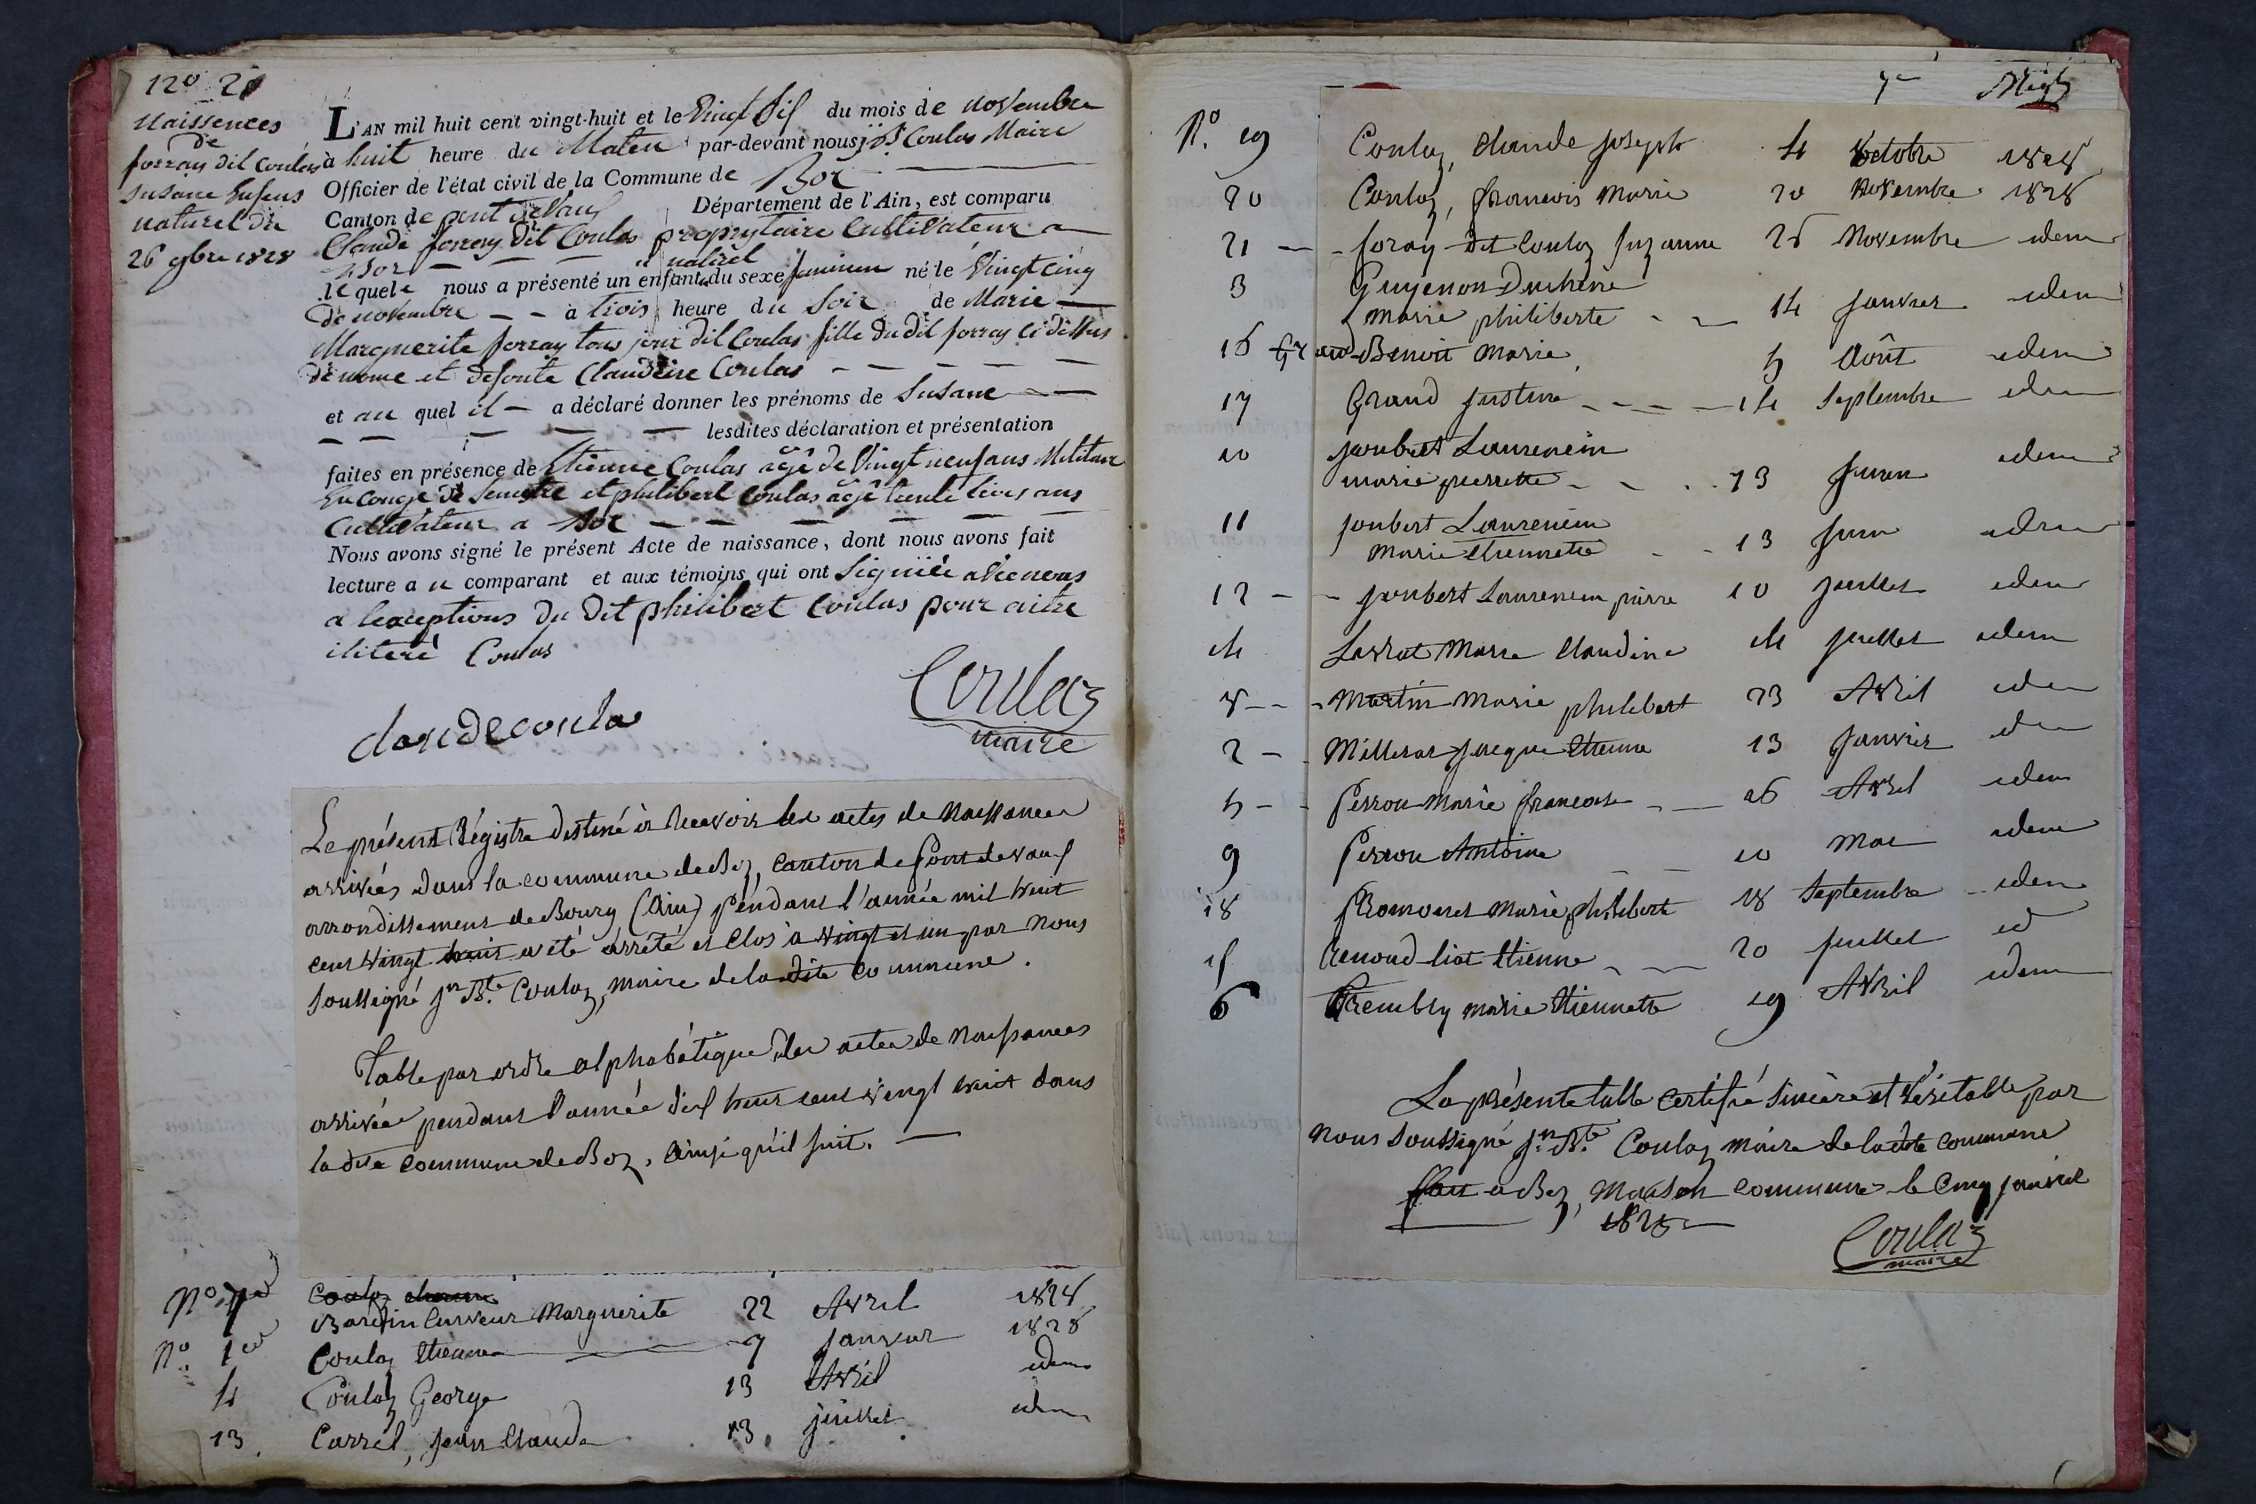 12º 21
Naissences
de
forray dit Coulas
Susane Enfens
naturel du
26 9bre 1828
L'AN mil huit cent vingt-huit et le Vingt Six du mois de novembre
à huit heure du Maten par-devant nous j. Bte Coulas Maire
Officier de l'état civil de la Commune de Boz
Canton de pont devaux Département de l'Ain, est comparu
Claude forray dit Coulas proprytaire Cultivateur a
Boz
naturel
lequele nous a présenté un enfant du sexe feminin né le Vingt cinq
de novembre à trois heure du Soir de Marie
Marguerite forray tous jour dit Coulas fille du dit forray ci dessus
dénome et defunte Claudine Coulas
et au quel il a déclaré donner les prénoms de Susane
lesdites déclaration et présentation
faites en présence de Etienne Coulas âgé de Vingt neuf ans Militaire
En Conge de Semestre et philibert Coulas âgé trente trois ans
Cultivateur a Boz
Nous avons signé le présent Acte de naissance, dont nous avons fait
lecture au comparant et aux témoins qui ont Signiée avec nous
a lexceptions du dit philibert Coulas pour aitre
iliteré Coulas
Coulaz
maire
claude coula
Le présent Régistre destiné à Recevoir les actes de Naissances
arrivées dans la commune de Boz, canton de Pont de vaux
arrondissement de Bourg (Ain) pendant l'année mil huit
cent vingt huit a été arrêté et clos à vingt et un par nous
soussigné Jn Bte Coulaz, maire de la dite commune.
Table par ordre alphabétique des actes de Naissances
arrivées pendant l'année dix huit cent vingt huit dans
la dite commune de Boz, ainsi qu'il suit.
Coulaz etienne
Nº 7 Bardin Curveur Marguerite 22 Avril 1828
Nº 1er Coulaz Etienne 7 Janvier 1828
4 Coulaz George 13 Avril idem
13 Carrel, Jean Claude 13 juillet idem
Nº 19 Coulaz, Claude Joseph 4 8octobre 1828
20 Coulaz, francois Marie 20 Novembre 1828
21 foray dit Coulaz Suzanne 26 Novembre idem
3 Guyenon Duchene
marie philiberte 14 Janvier idem
16 Grand Benoit Marie 5 Août idem
17 Grand Justine 14 Septembre idem
10 Joubert Laurencin
marie pierrette 13 Juin idem
11 Joubert Laurencin
Marie Etiennette 13 Juin idem
12 Joubert Laurencin pierre 10 Juillet idem
14 Lavrat Marie Claudine 14 Juillet idem
8 Martin Marie philibert 23 Avril idem
2 Milleror Jacque Etienne 13 Janvier idem
5 Perrou Marie francoise 16 Avril idem
9 Perrou Antoine 10 Mai idem
18 Promonet Marie philiberte 18 Septembre idem
15 Renoud liat Etienne 20 Juillet id
6 Trembly Marie Etiennette 19 Avril idem
La présente table certifié sincère et véritable par
nous soussigné Jn Bte Coulaz maire de la dite commune
fait à Boz, Maison commune le cinq janvier
Coulaz
maire